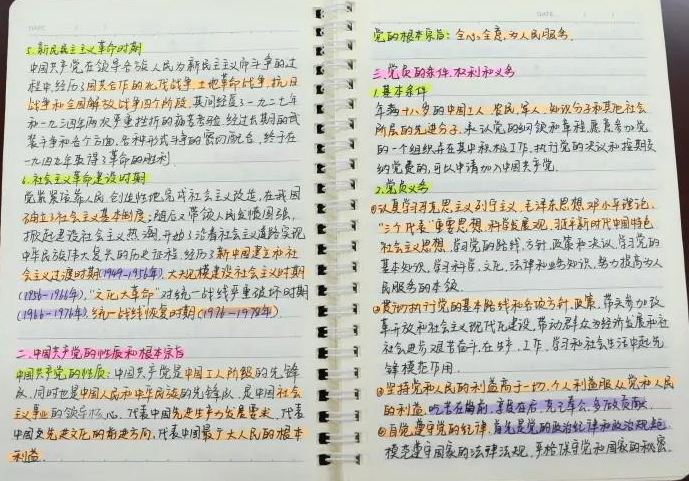 5.新民主主义革命时期
中国共产党在领导各族人民为新民主主义而斗争的过
程中,经历了国共合作的北伐战争、土地革命战争、抗日
战争和全国解放战争四个阶段,其间经受了一九二七年
和一九三四年两次严重挫折的痛苦考验,经过长期的武
装斗争和各个方面、各种形式斗争的密切配合,终于在
一九四九年取得了革命的胜利.
6.社会主义革命建设时期
党紧紧依靠人民,创造性地完成社会主义改造,在我国
确立了社会主义基本制度;随后又带领人民发愤图强,
掀起建设社会主义热潮,开始了沿着社会主义道路实现
中华民族伟大复兴的历史征程,经历了新中国建立和社
会主义过渡时期(1949-1956年),大规模建设社会主义时期
(1956-1966年),"文化大革命"对统一战线严重破坏时期
(1966-1976年),统一战线恢复时期(1976-1978年).
二.中国共产党的性质和根本宗旨
中国共产党的性质:中国共产党是中国工人阶级的先锋
队,同时也是中国人民和中华民族的先锋队,是中国社会
主义事业的领导核心,代表中国先进生产力发展要求,代表
中国先进文化的前进方向,代表中国最广大人民的根本
利益.
党的根本宗旨:全心全意为人民服务.
三.党员的条件、权利和义务
1.基本条件
年满十八岁的中国工人、农民、军人、知识分子和其他社会
阶层的先进分子,承认党的纲领和章程,愿意参加党
的一个组织并在其中积极工作、执行党的决议和按期交
纳党费的,可以申请加入中国共产党.
2.党员义务
①认真学习马克思主义列宁主义、毛泽东思想、邓小平理论、
"三个代表"重要思想、科学发展观、习近平新时代中国特色
社会主义思想,学习党的路线、方针、政策和决议,学习党的
基本知识,学习科学、文化、法律和业务知识,努力提高为人
民服务的本领.
②贯彻执行党的基本路线和各项方针、政策,带头参加改
革开放和社会主义现代化建设,带动群众为经济发展和社
会进步艰苦奋斗,在生产、工作、学习和社会生活中起先
锋模范作用.
③坚持党和人民的利益高于一切,个人利益服从党和人民
的利益,吃苦在前,享受在后,克己奉公,多做贡献.
④自觉遵守党的纪律,首先是党的政治纪律和政治规矩,
模范遵守国家的法律法规,严格保守党和国家的秘密,